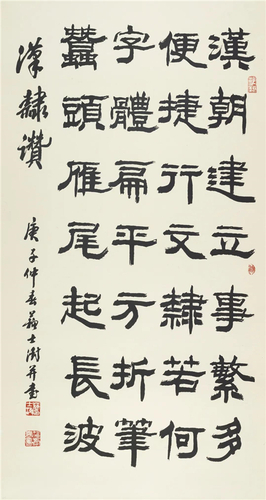 漢朝建立事繁多
便捷行文隸若何
字體扁平方折筆
蠶頭雁尾起長波
漢隸讚
庚子仲春蘇士澍并書